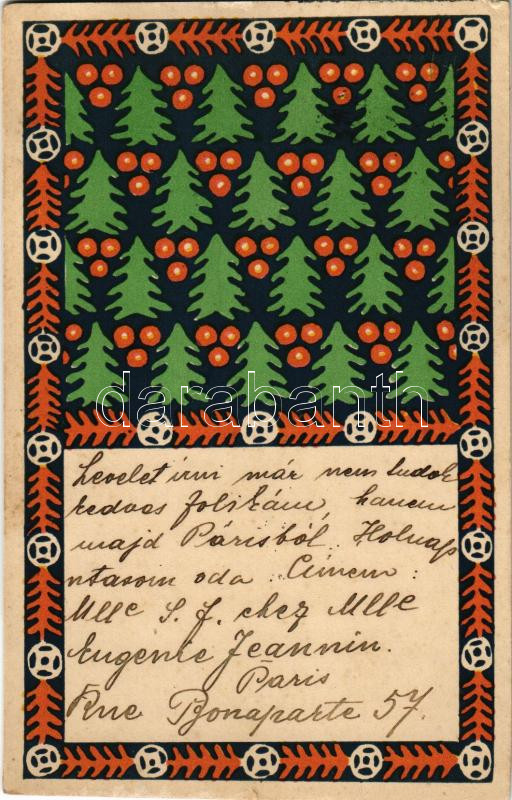 darabanth
Levelet irni már nem tudok
kedves Jolikám, hanem
majd Párisból. Holnap
utasom oda. Cimem:
Mlle S. J. chez Mlle
Eugenie Jeannin.
Paris
Rue Bonaparte 57.